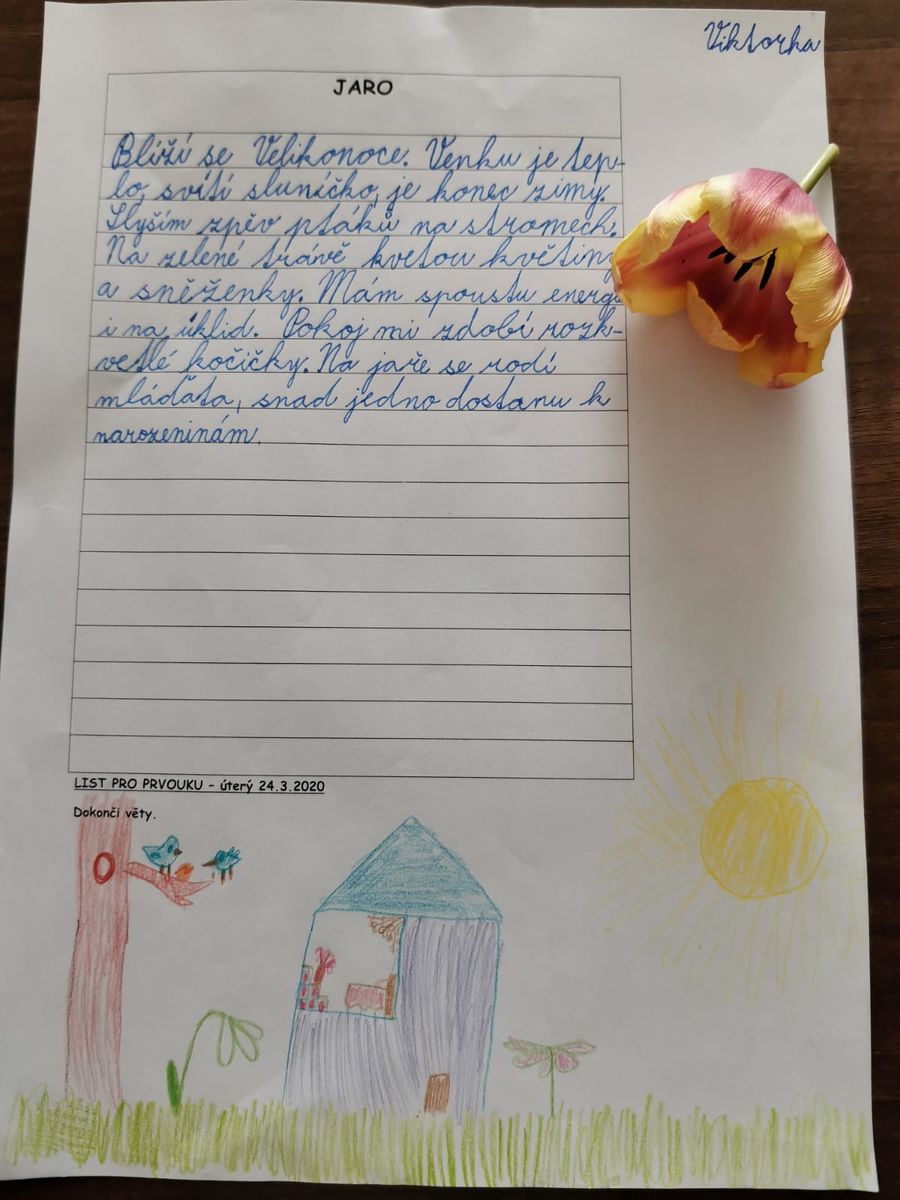 Viktorka
JARO
Blíží se Velikonoce. Venku je tep-
lo, svítí sluníčko, je konec zimy.
Slyším zpěv ptáků na stromech.
Na zelené trávě kvetou květiny
a sněženky. Mám spoustu energi
i na úklid. Pokoj mi zdobí rozk-
vetlé kočičky. Na jaře se rodí
mláďata, snad jedno dostanu k
narozeninám.
LIST PRO PRVOUKU - úterý 24.3.2020
Dokonči věty.